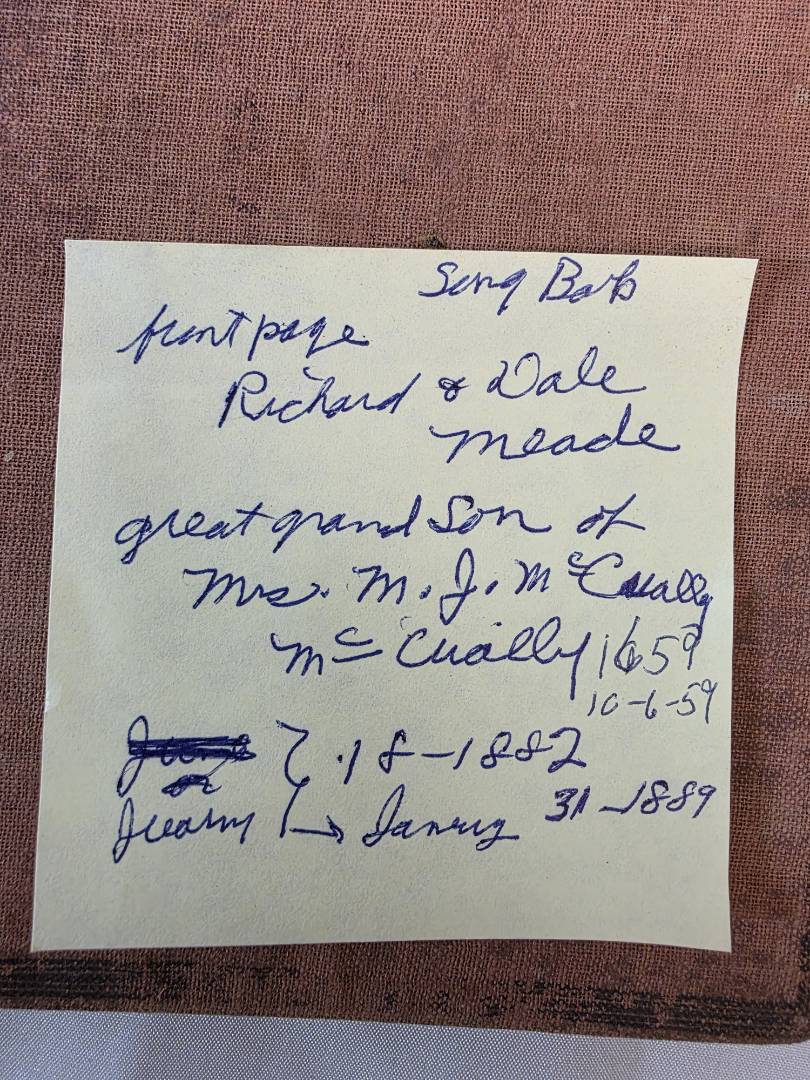 Song Book
front page
Richard & Dale
Meade
great grand Son of
Mrs. M. J. McCually
McCually 1659
10-6-59
18-1882
Janruy 31-1889